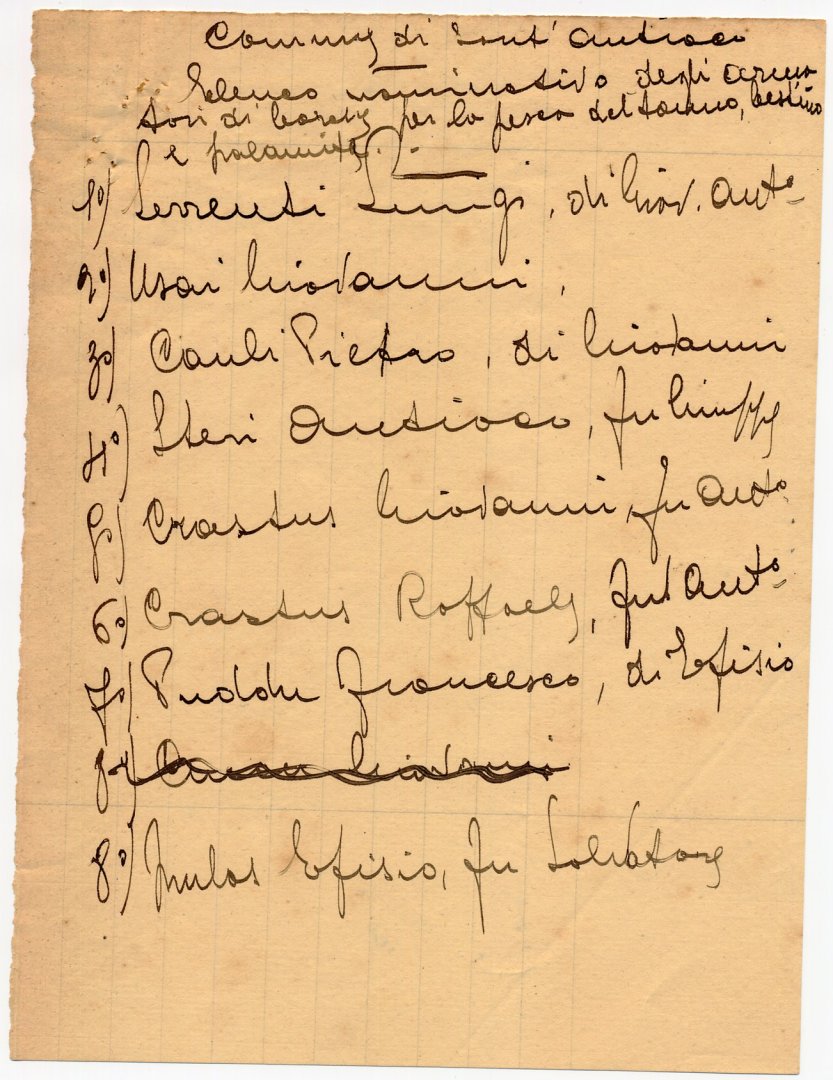 Comune di Sant'Antioco
Elenco nominativo degli arma
tori di barche per la pesca del tonno,
e palamite.
1°) Serrenti Luigi, di Giov. Ant°
2°) Usai Giovanni,
3°) Cauli Pietro, di Giovanni
4°) Steri Antioco, fu Giuseppe
5°) Crastus Giovanni, fu Ant°
6°) Crastus Raffaele, fu Ant°
7°) Puddu Francesco, di Efisio
8°) Giovanni
8°) Efisio, fu Salvatore